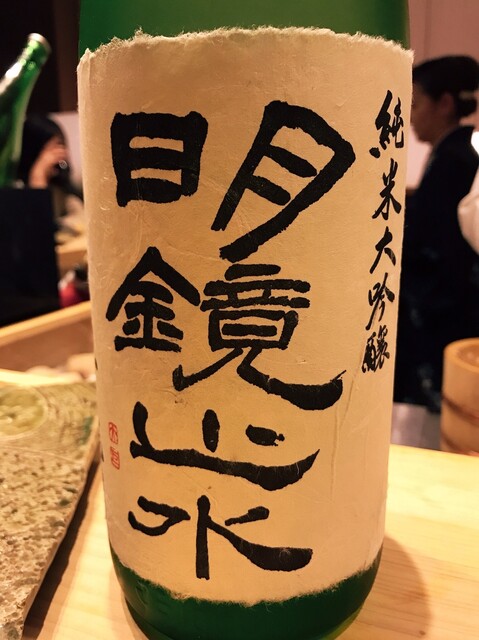 純米大吟醸
明鏡止水